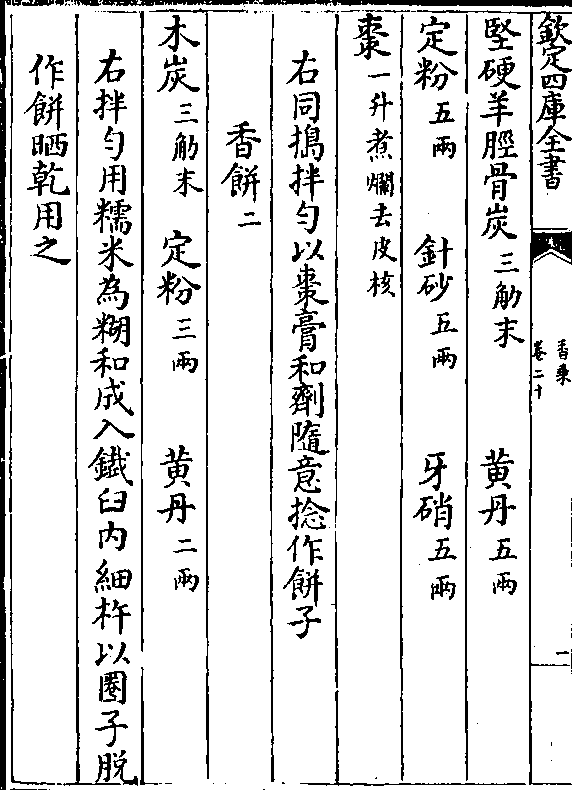 欽定四庫全書
香乘
卷二十
一
堅硬羊脛骨炭三觔末 黃丹五兩
定粉五兩 針砂五兩 牙硝五兩
棗一升煮爛去皮核
右同搗拌匀以棗膏和劑隨意捻作餅子
香餅二
木炭三觔末 定粉三兩 黃丹二兩
右拌匀用糯米為糊和成入鐵臼内細杵以圈子脫
作餅晒乾用之